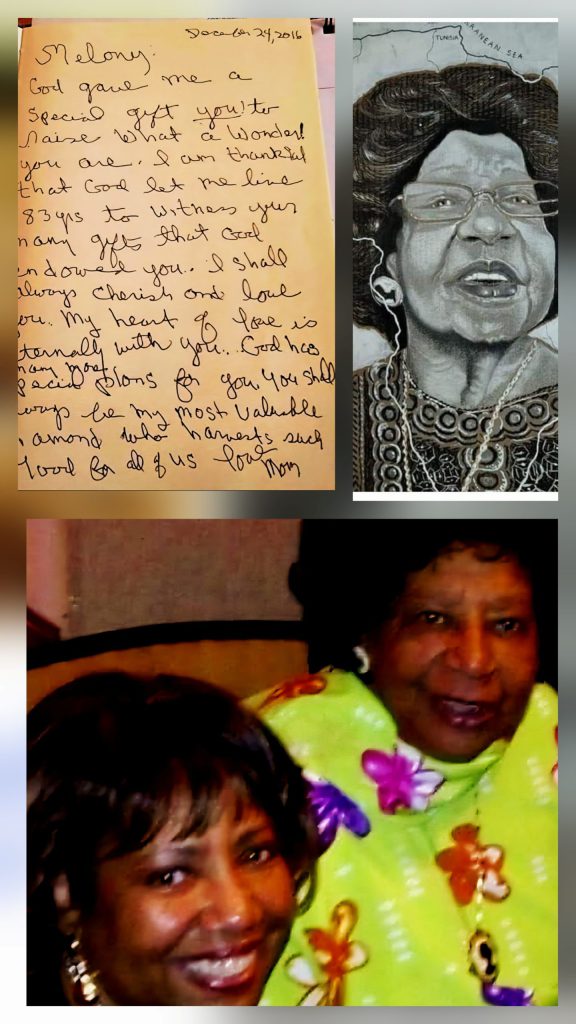 December 24, 2016
Melony:
God gave me a
special gift you! to
raise What a Wonder!
you are. I am thankful
that God let me live
83 yrs to witness your
many gifts that God
ndowed you.. I shall
always cherish and love
ou. My heart of love is
ternally with you.. God has
many more
special plans for you. You shall
ways be my most valuable
iamond who harvests such
good for all of us love
Mom
TUNISIA
RRANEAN SEA